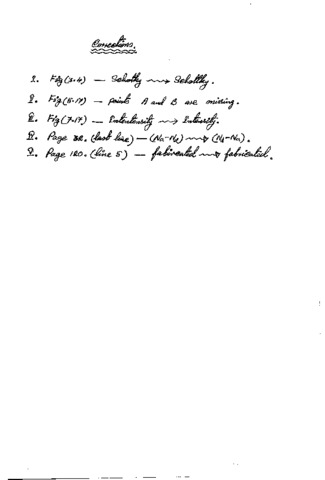 Corrections.
1. Fig(3.4) — Schotky ⟿ Schottky.
2. Fig(5.17) — points A and B are missing.
3. Fig(7.17) — Intentensity ⟿ Intensity.
4. Page 32. (last line) — (Na-Nd) ⟿ (Nd-Na).
5. Page 120. (line 5) — fabiricated ⟿ fabricated.